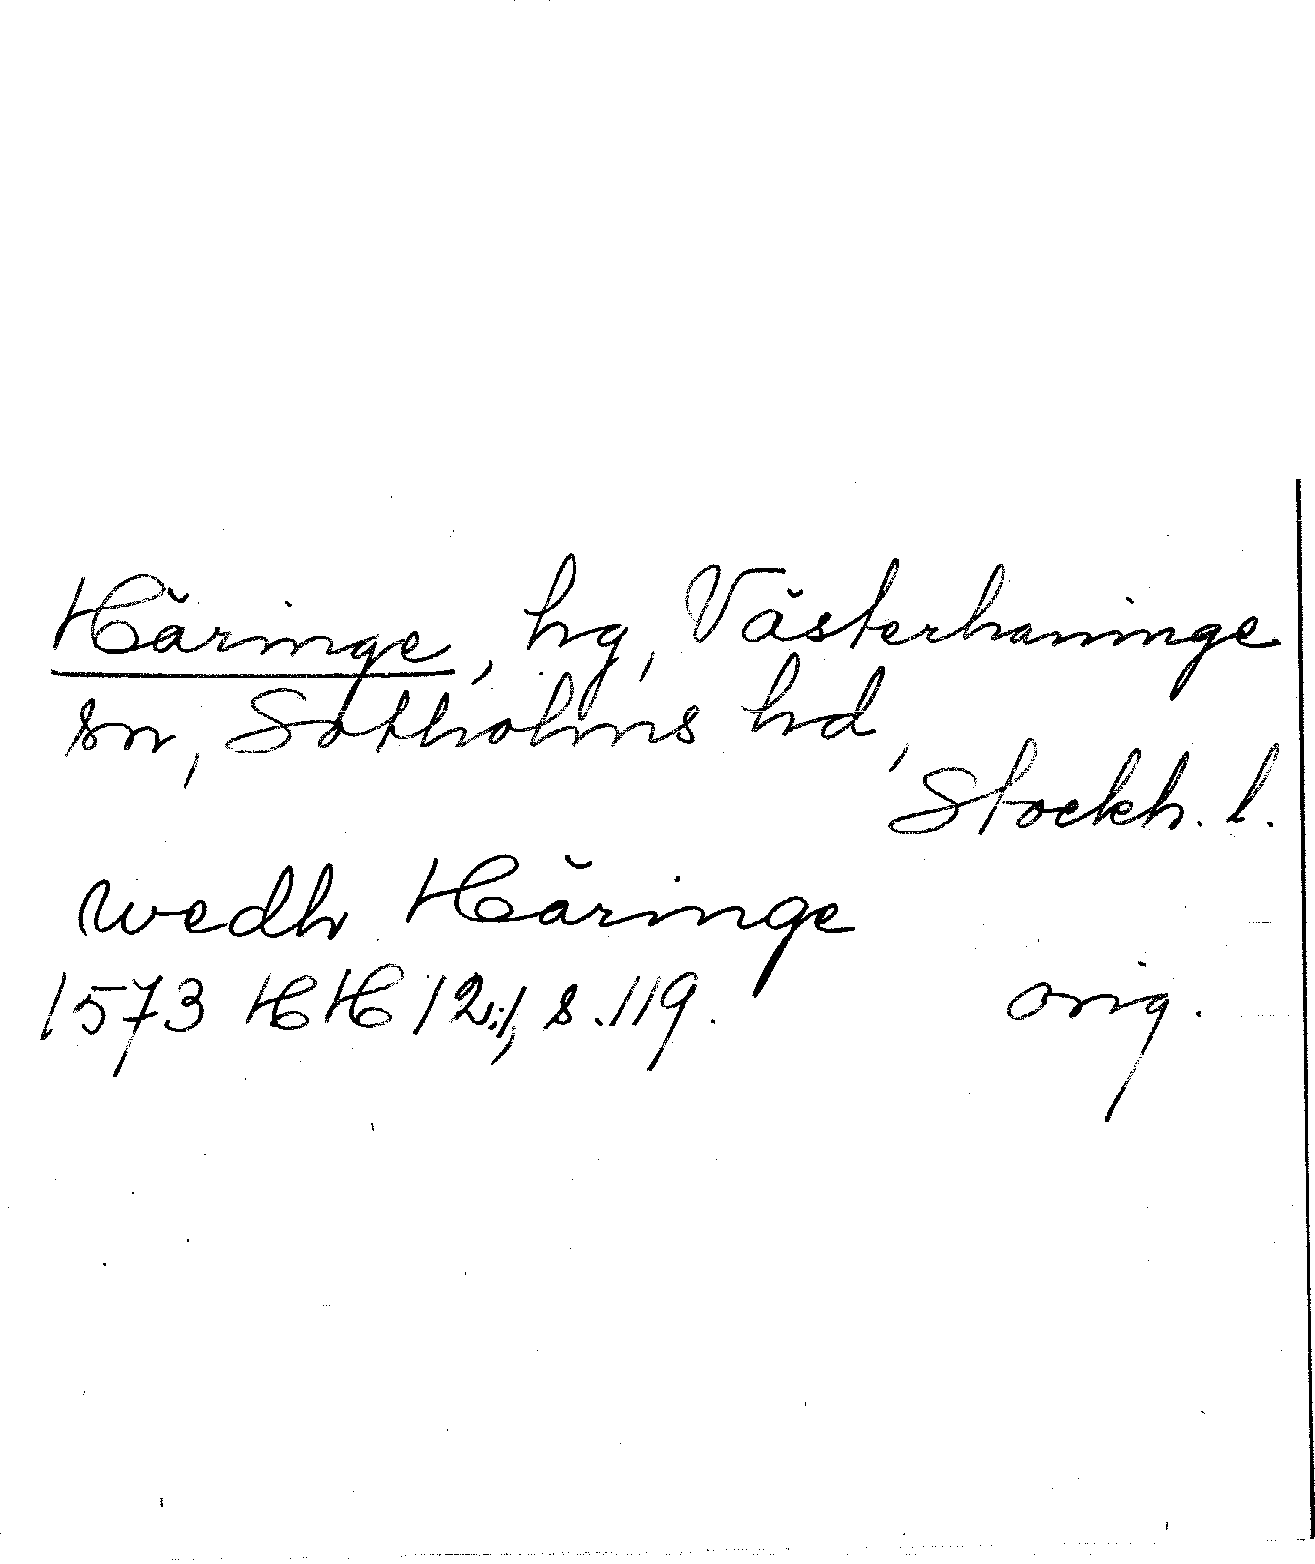 Häringe, hg, Västerhaninge
sn, Sotholms hd,
Stockh. l.
wedh Häringe
1573 HH 12:1, s. 119. orig.